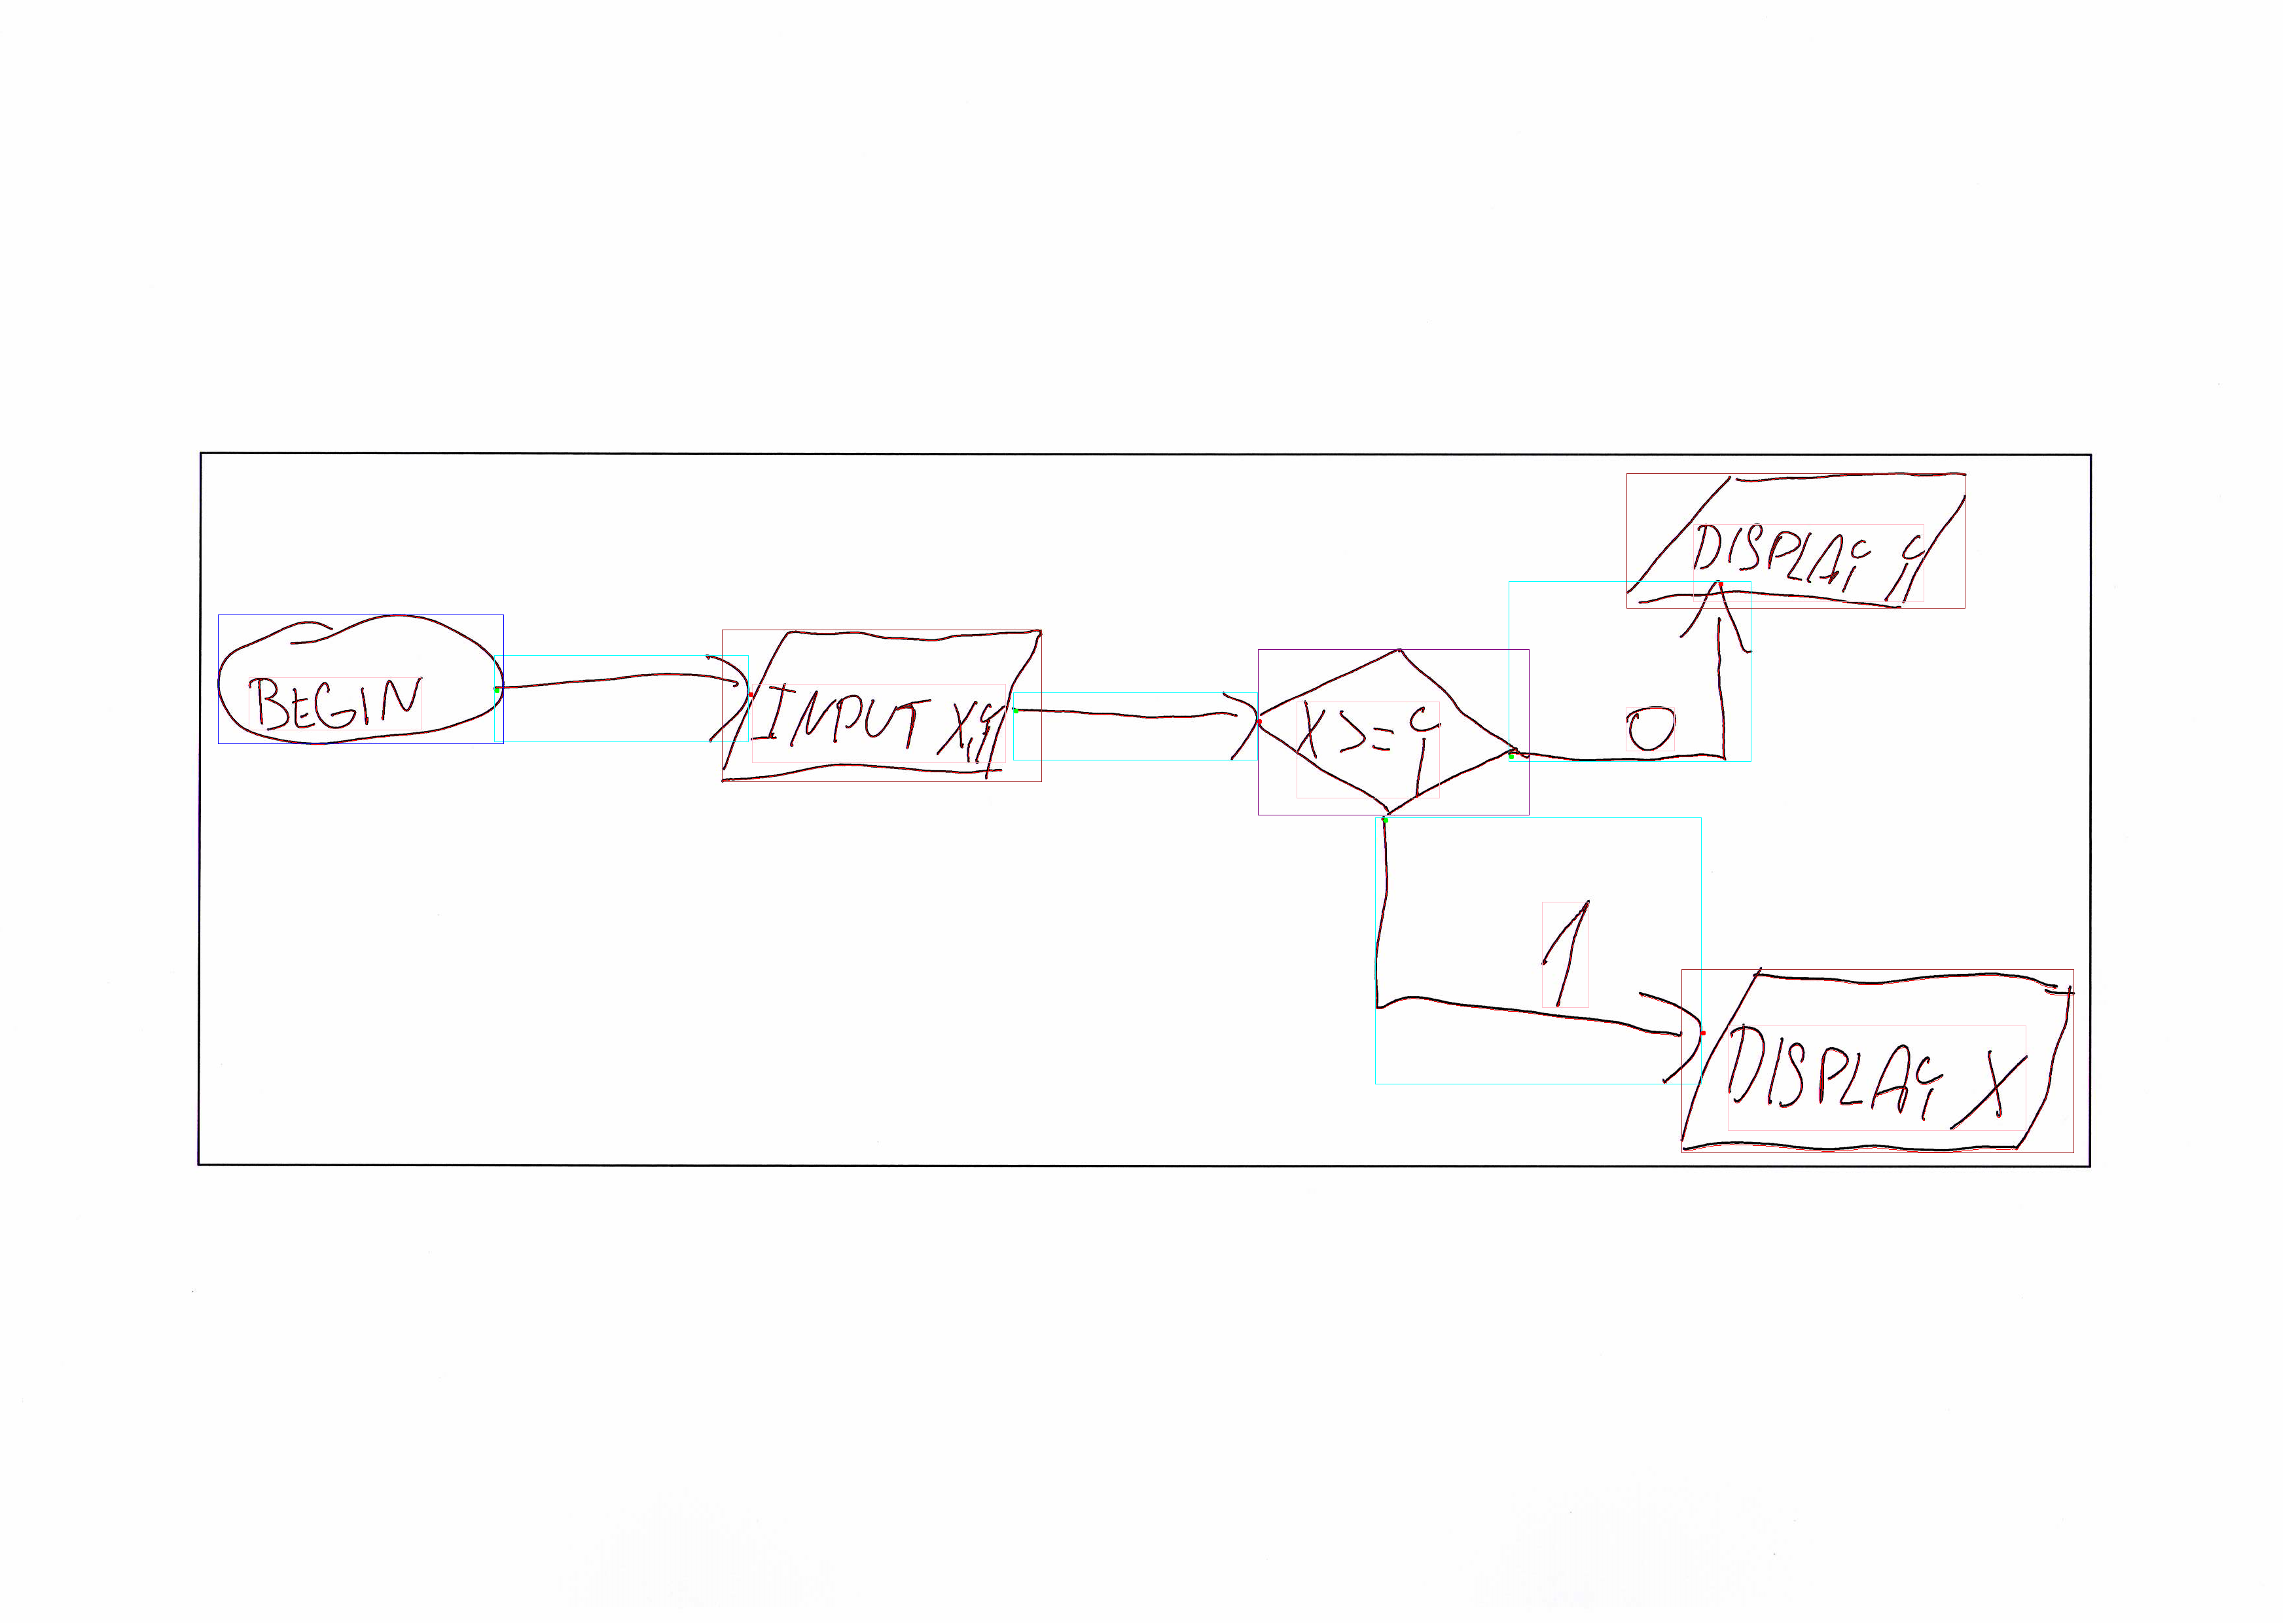 BEGIN
INPUT X,Y
X>=Y
0
DISPLAY Y
1
DISPLAY X